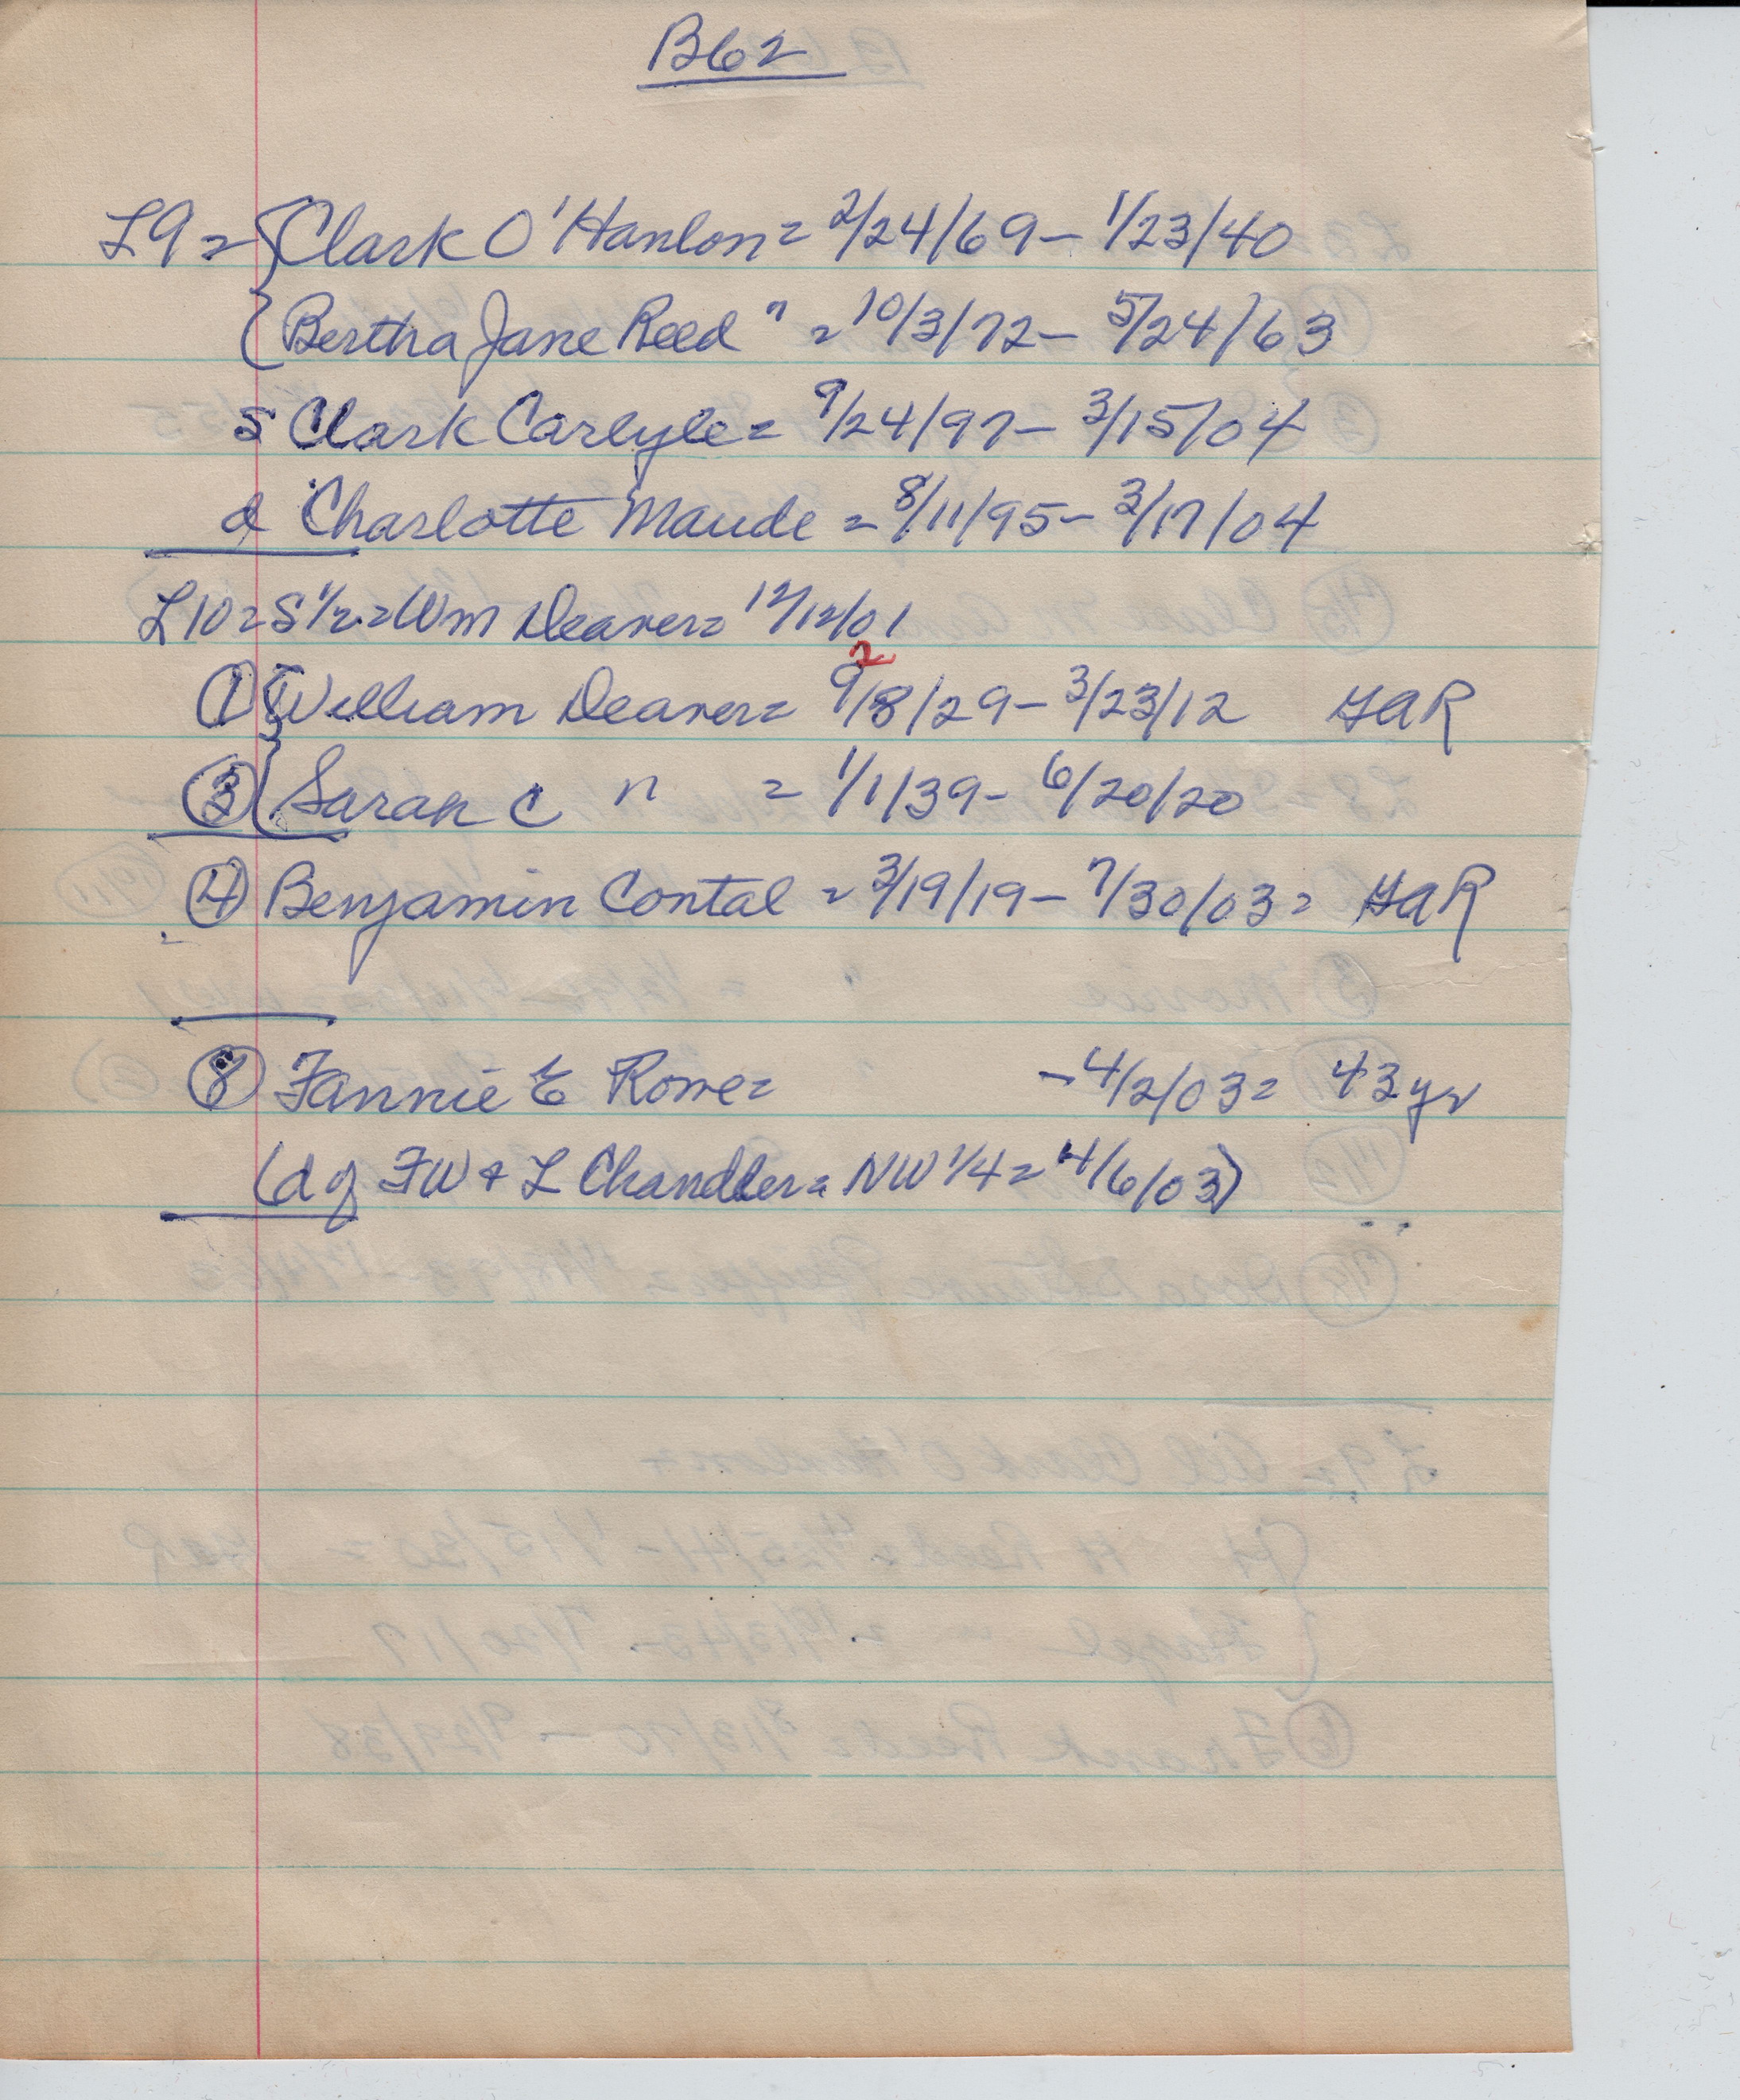 B62
L9 = { Clark O'Hanlon = 2/24/69 - 1/23/40
{ Bertha Jane Reed " = 10/3/72 - 5/24/63
S Clark Carlyle = 9/24/97 - 3/15/04
d Charlotte Maude = 8/11/95 - 3/17/04
L10 = S 1/2 = Wm Deaver = 12/12/01
2
① { William Deaver = 9/8/29 - 3/23/12 GAR
③ { Sarah C " = 1/1/39 - 6/20/20
④ Benjamin Contal = 3/19/19 - 7/30/03 = GAR
⑧ Fannie E Rowe = - 4/2/03 = 43 yr
(d of FW & L Chandler = NW 1/4 = 4/6/03)